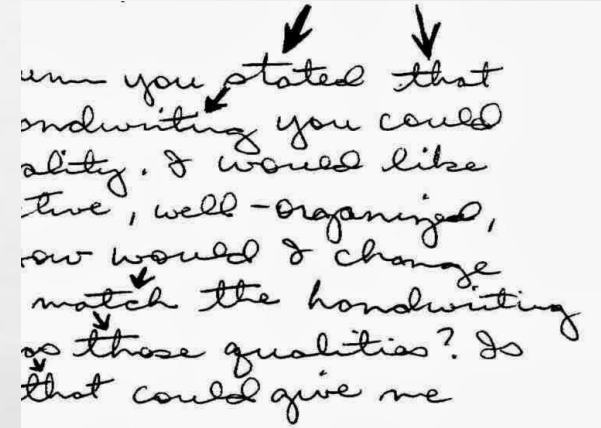 you stated that
andwriting you could
ality. I would like
tive, well-organized,
ow would I change
match the handwriting
as those qualities? Is
that could give me